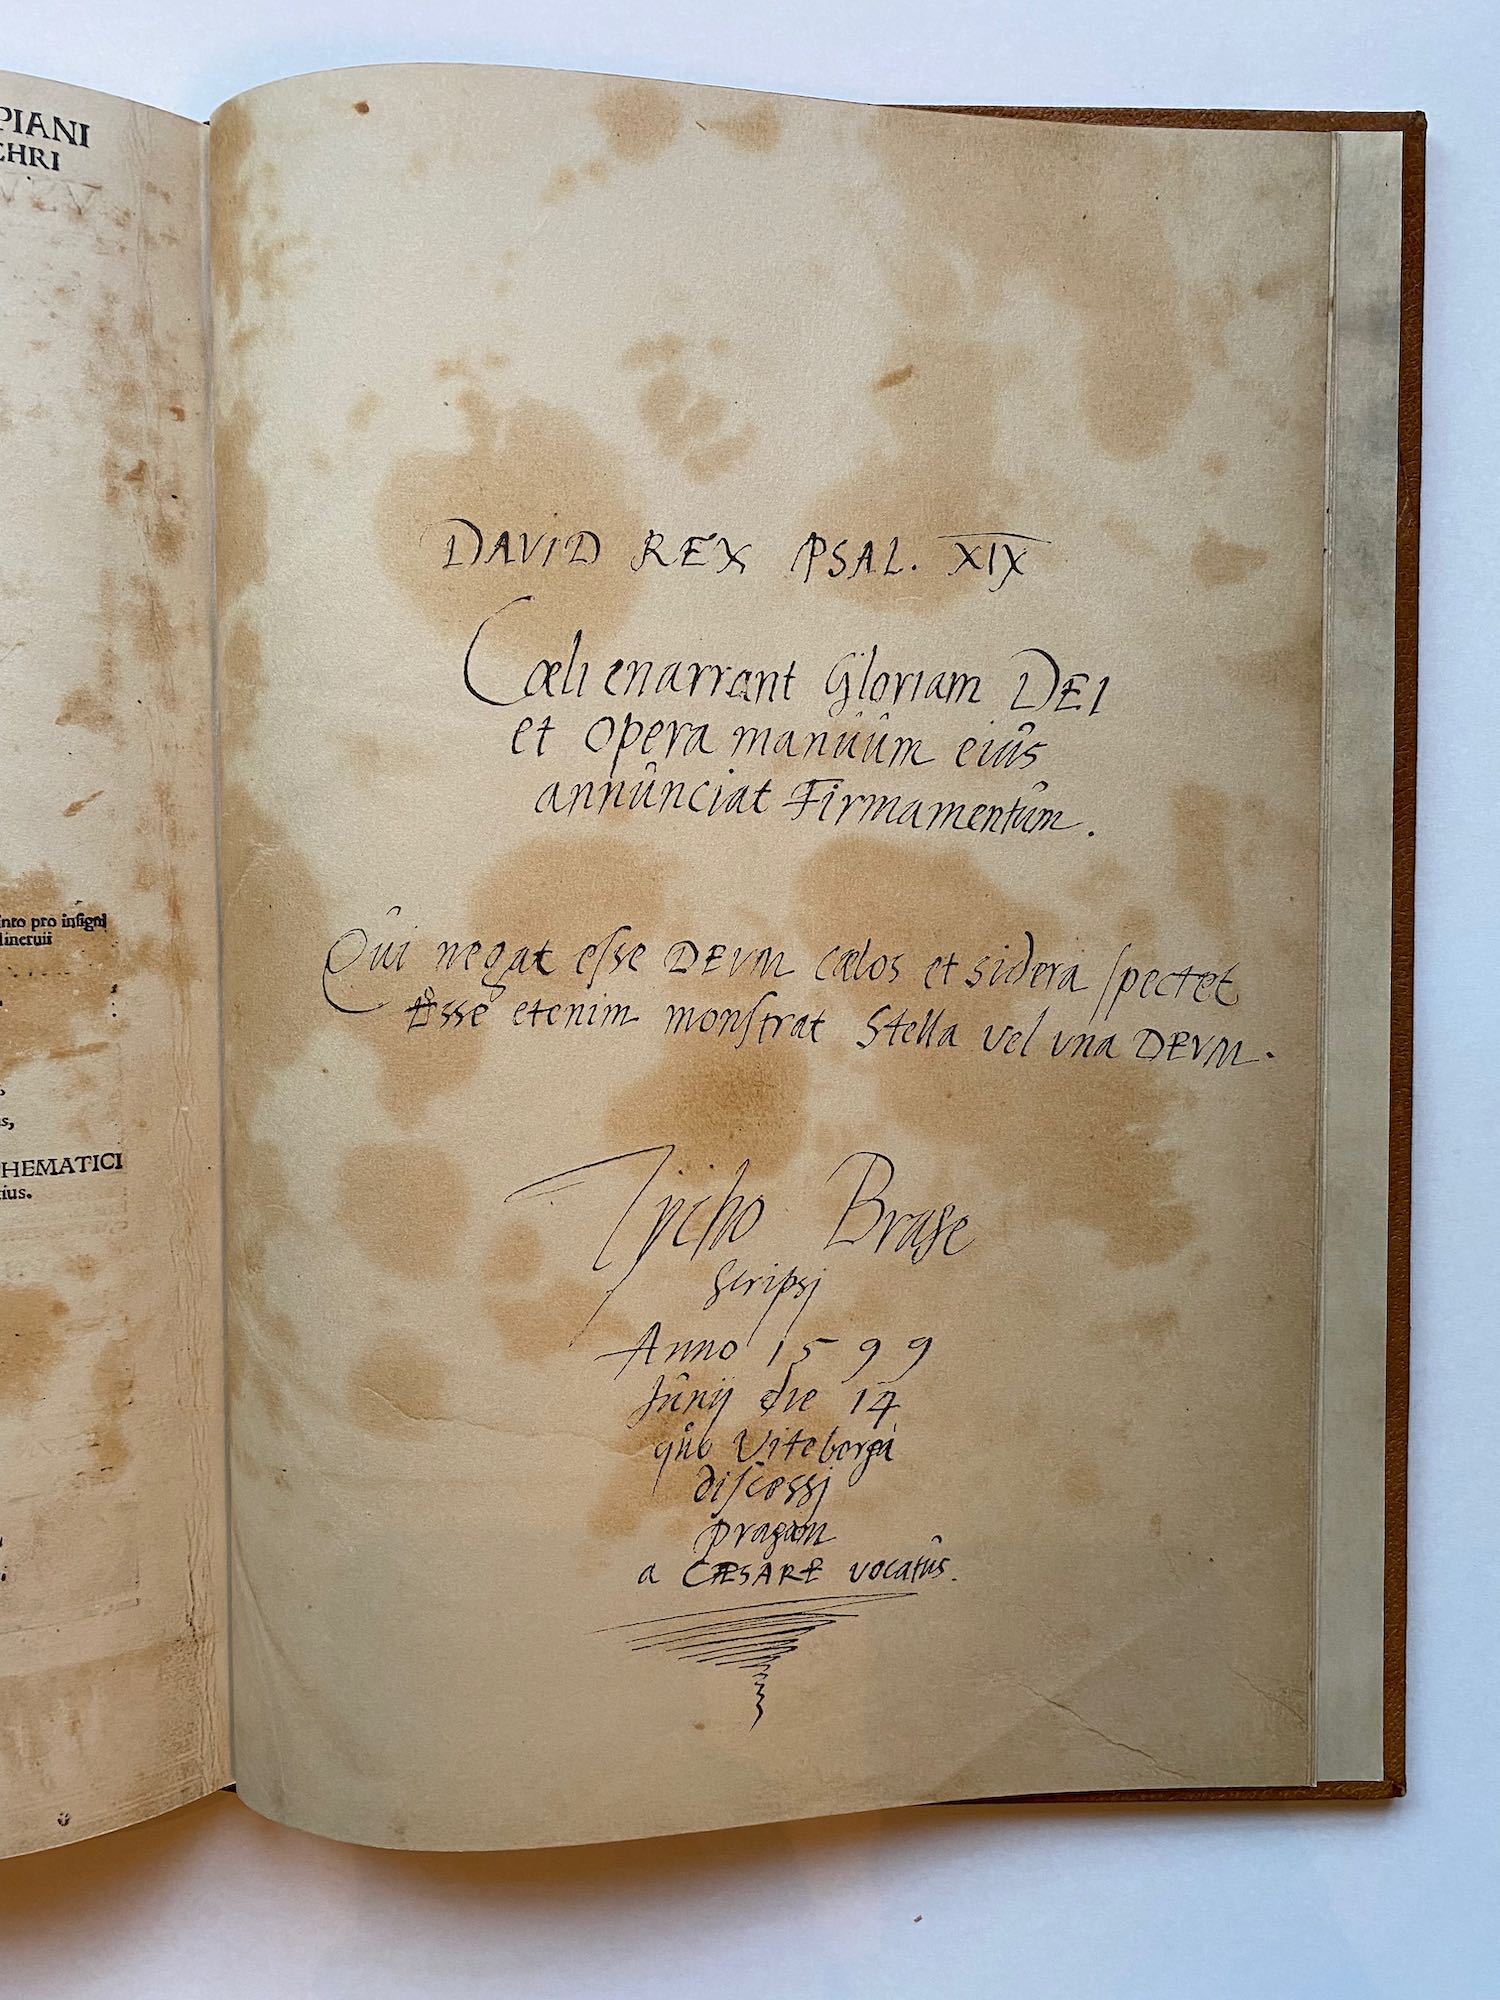 PIANI
CHRI
into pro insigni
lineruii
HEMATICI
tius.
DAVID REX PSAL. XIX
Cœli enarrant Gloriam DEI
et opera manûûm eiûs
annûnciat Firmamentûm.
Qûi negat eſse DEVM cœlos et sidera ſpectet
Esse etenim monſtrat Stella vel vna DEVM.
Tÿcho Brahe
scripsj
Anno 1599
Jûnij die 14
qûo Viteberga
diſcessj
Pragam
a CÆSARE vocatûs.